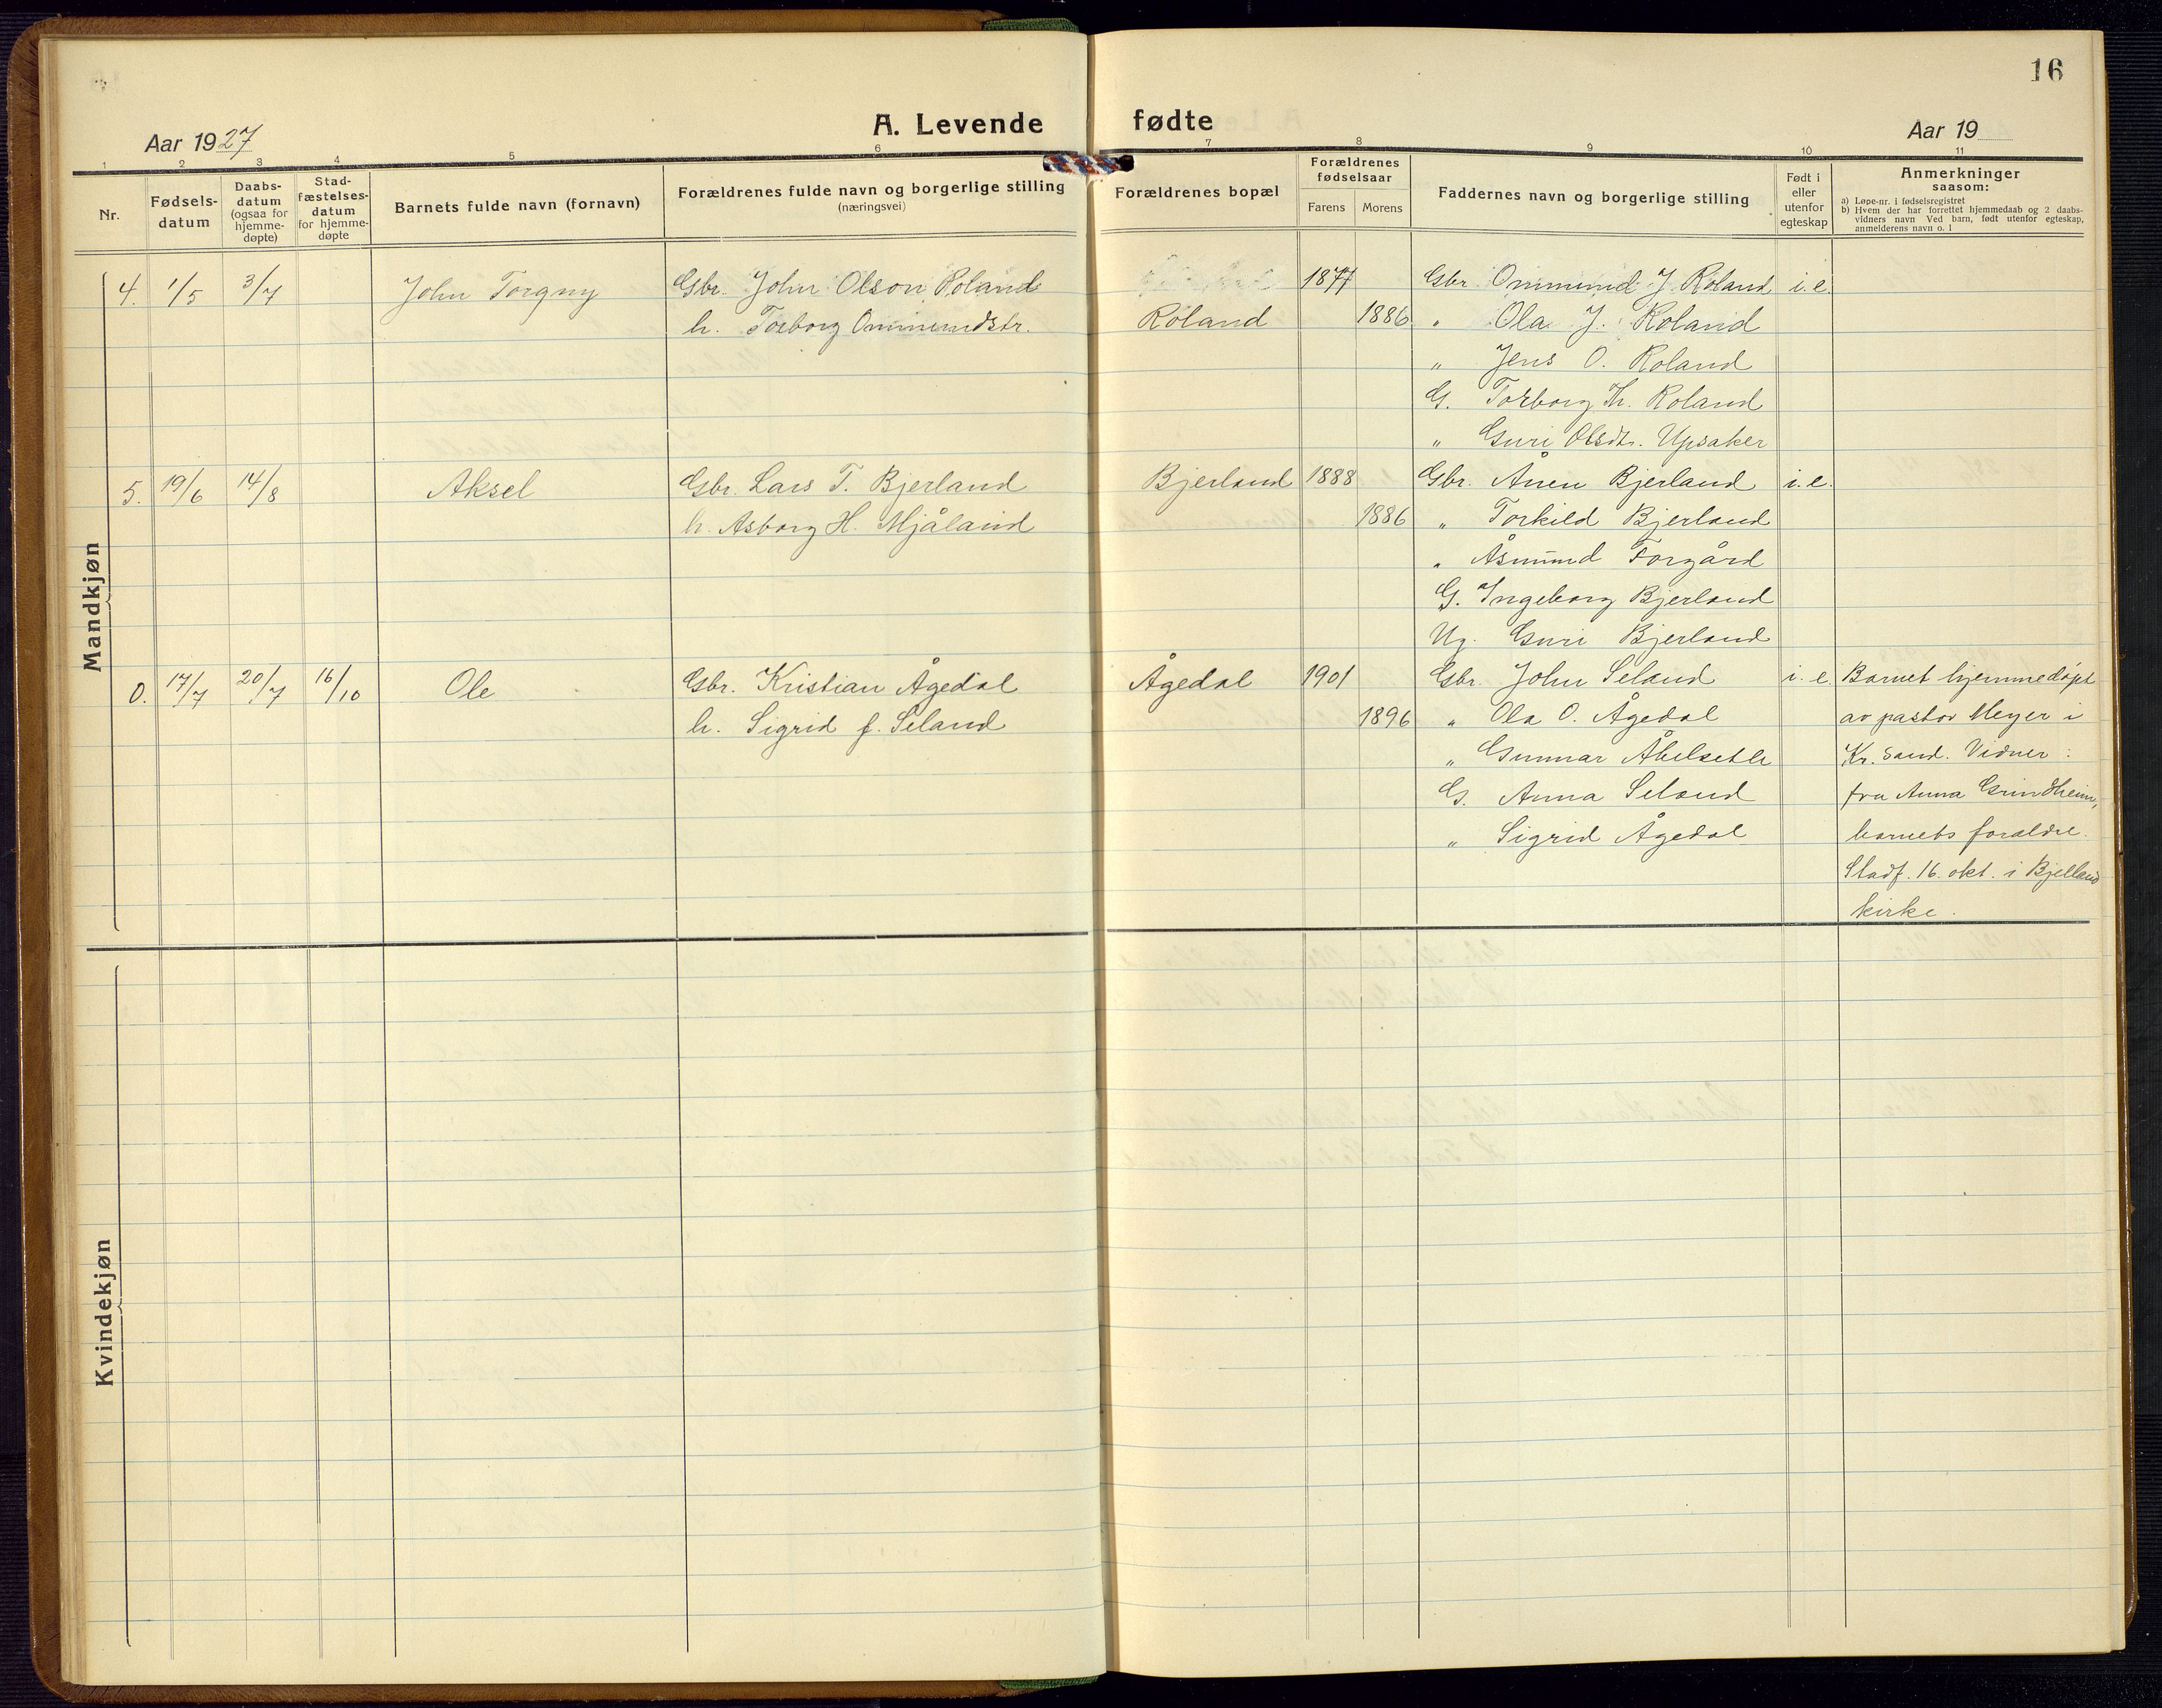 16
A. Levende fødte
Aar 1927
Aar 19
1 2 3 4 5 6 7 8 9 10 11
Nr.
Fødsels-
datum
Daabs-
datum
(ogsaa for
hjemme-
døpte)
Stad-
fæstelses-
datum
for hjemme-
døpte
Barnets fulde navn (fornavn)
Forældrenes fulde navn og borgerlige stilling
(næringsvei)
Forældrenes bopæl
Forældrenes
fødselsaar
Farens Morens
Faddernes navn og borgerlige stilling
Født i
eller
utenfor
egteskap
Anmerkninger
saasom:
a) Løpe-nr. i fødselsregistret
b) Hvem der har forrettet hjemmedaab og 2 daabs-
vidners navn Ved barn, født utenfor egteskap,
anmelderens navn o. l
Mandkjøn
4. 1/5 3/7 John Torgny Gbr. John Olson Roland 1877 Gbr. Ommund J. Roland i. e.
h. Torborg Ommundstr. Roland 1886 " Ola J. Roland
" Jens O. Roland
G. Torborg Th. Roland
" Guri Olsdtr. Upsaker
5. 19/6 14/8 Aksel Gbr. Lars T. Bjerland Bjerland 1888 Gbr. Ånen Bjerland i. e.
h. Asborg H. Mjåland 1886 " Torkild Bjerland
" Åsmund Forgård
G. Ingeborg Bjerland
Ug. Guri Bjerland
0. 17/7 20/7 16/10 Ole Gbr. Kristian Ågedal Ågedal 1901 Gbr. John Seland i. e. Barnet hjemmedøpt
h. Sigrid f. Seland 1896 " Ola O. Ågedal av pastor Meyer i
" Gunnar Åbelsetle Kr.sand. Vidner:
G. Anna Seland fru Anna Grindheim,
" Sigrid Ågedal barnets foraldre.
Stadf. 16. okt. i Bjelland
kirke.
Kvindekjøn